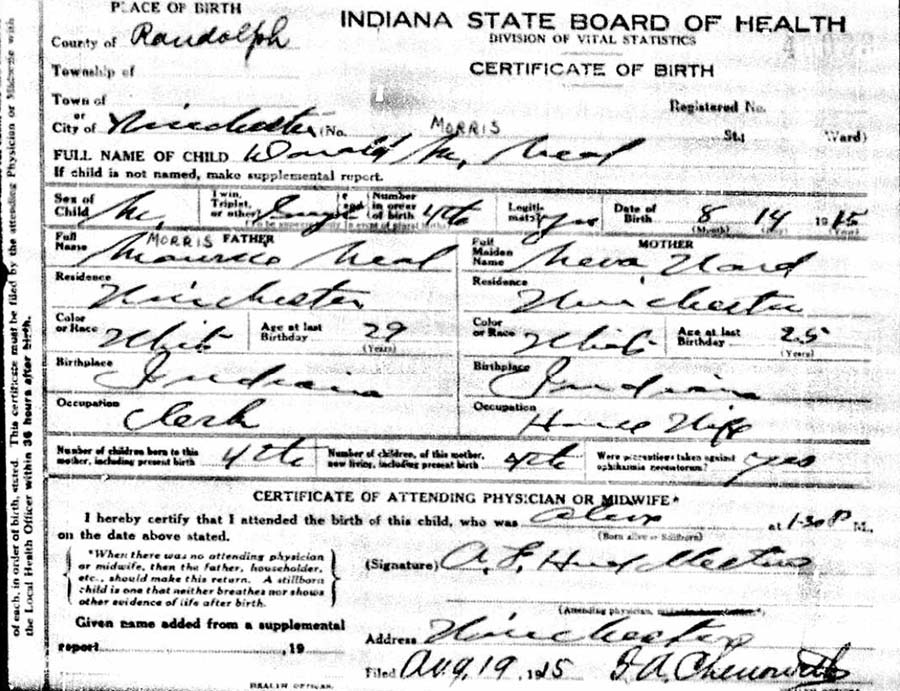 PLACE OF BIRTH
INDIANA STATE BOARD OF HEALTH
DIVISION OF VITAL STATISTICS
CERTIFICATE OF BIRTH
County of Randolph
Township of
Town of
or
City of Winchester (No. St.; Ward)
Registered No.
MORRIS
FULL NAME OF CHILD Donald M. Neal
If child is not named, make supplemental report.
Sex of Child M. Twin, Triplet, or other? Single and Number in order of birth 4th Legitimate? yes Date of Birth 8 14 1915
(Month) (Day) (Year)
FATHER
Full Name MORRIS Maurice Neal
Residence Winchester
Color or Race White Age at last Birthday 29
(Years)
Birthplace Indiana
Occupation Clerk
MOTHER
Full Maiden Name Neva Ward
Residence Winchester
Color or Race White Age at last Birthday 25
(Years)
Birthplace Indiana
Occupation House Wife
Number of children born to this mother, including present birth 4th Number of children, of this mother, now living, including present birth 4th Were precautions taken against ophthalmia neonatorum? yes
CERTIFICATE OF ATTENDING PHYSICIAN OR MIDWIFE*
I hereby certify that I attended the birth of this child, who was alive at 1-30 P M.,
(Born alive or Stillborn)
on the date above stated.
*When there was no attending physician
or midwife, then the father, householder,
etc., should make this return. A stillborn
child is one that neither breathes nor shows
other evidence of life after birth.
(Signature) A. F.
(Attending physician,
Given name added from a supplemental
report , 19
Address Winchester
Filed Aug 19, 1915 J. A. Chenoweth
HEALTH OFFICER
HEALTH OFFICER
of each, in order of birth, stated. This certificate must be filed by the attending Physician or Midwife with
the Local Health Officer within 36 hours after birth.